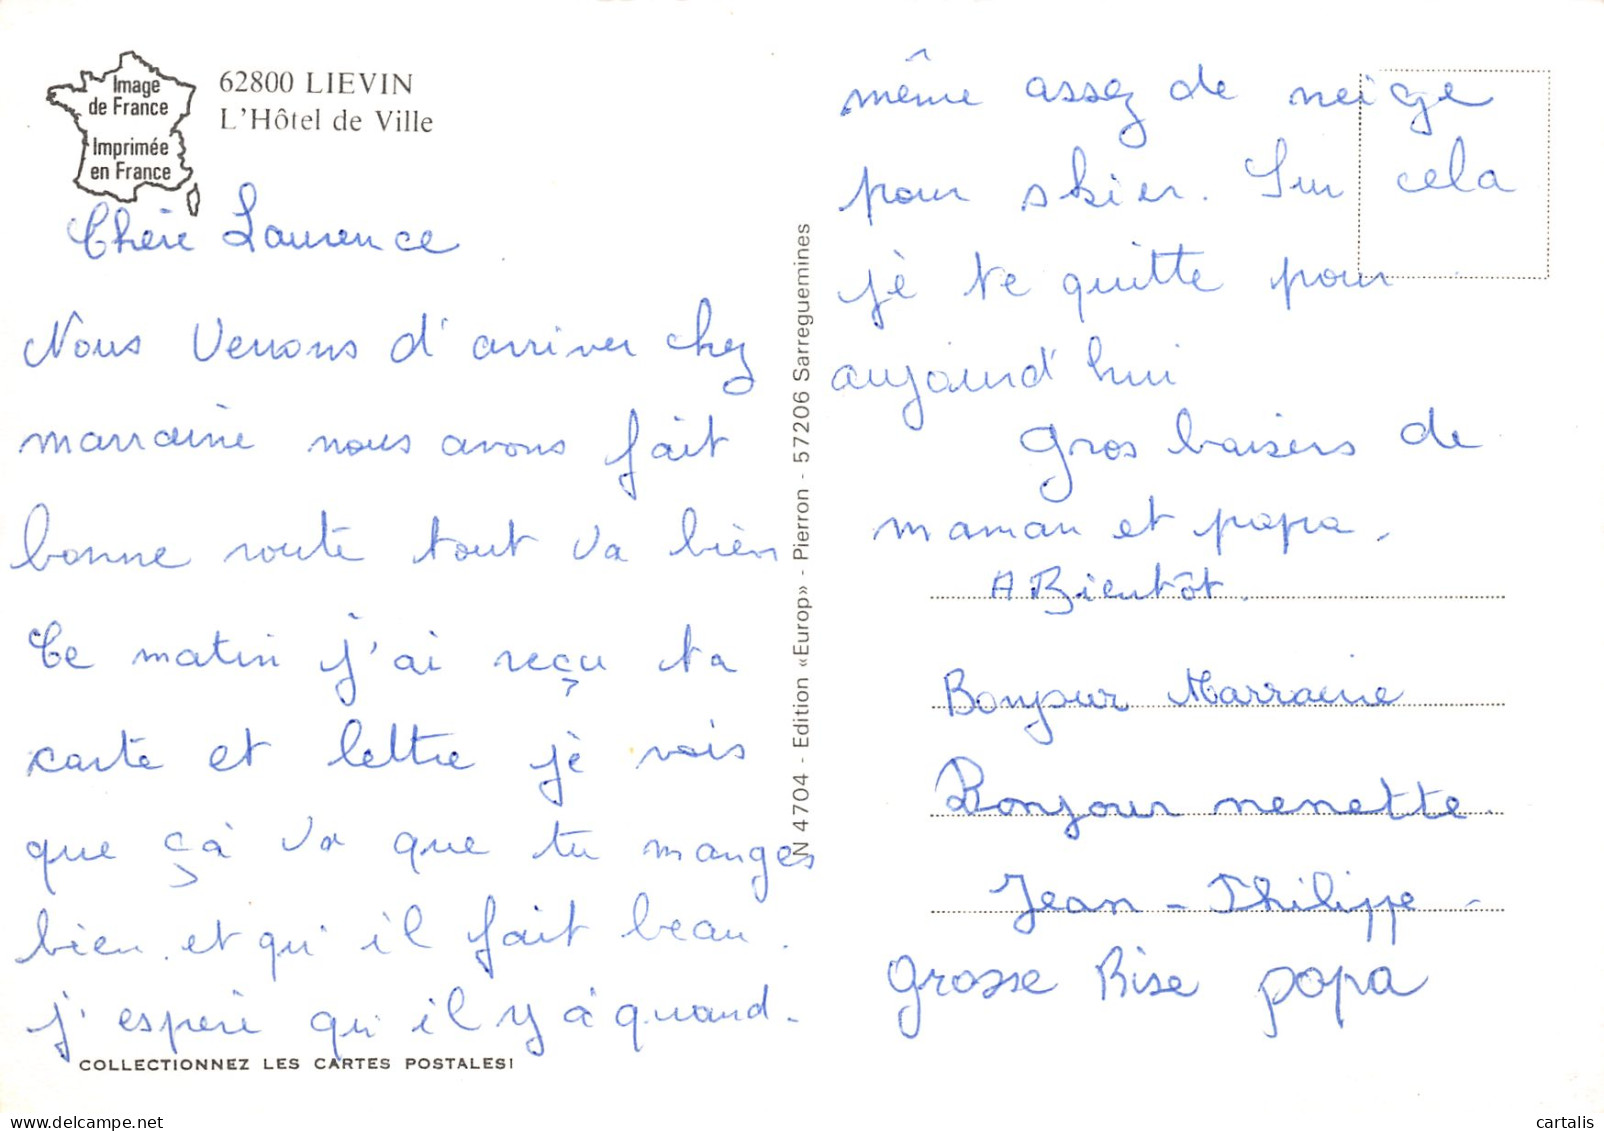 Image
de France
Imprimée
en France
62800 LIEVIN
L'Hôtel de Ville
Chère Laurence
Nous venons d'arriver chez
marraine nous avons fait
bonne route tout va bien
Ce matin j'ai reçu ta
carte et lettre je vois
que çà va que tu manges
bien. et qu'il fait beau.
j'espère qu'il y à quand-
COLLECTIONNEZ LES CARTES POSTALES!
N 4704 - Edition «Europ» - Pierron - 57206 Sarreguemines
même assez de neige
pour skier. Sur cela
je te quitte pour
aujourd'hui
Gros baisers de
maman et papa.
A Bientôt.
Bonjour Marraine
Bonjour nenette.
Jean-Philippe-
Grosse Bise papa
www.delcampe.net
cartalis